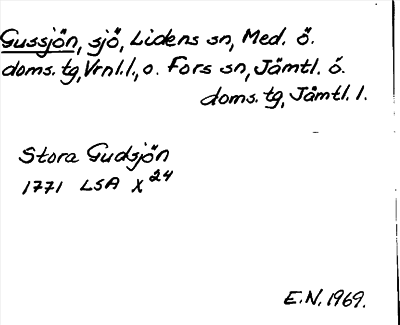 Gussjön, sjö, Lidens sn, Med. ö.
doms. tg, Vrnl. l., o. Fors sn, Jämtl. ö.
doms. tg, Jämtl. l.
Stora Gudsjön
1771 LSA X 24
E.N. 1969.